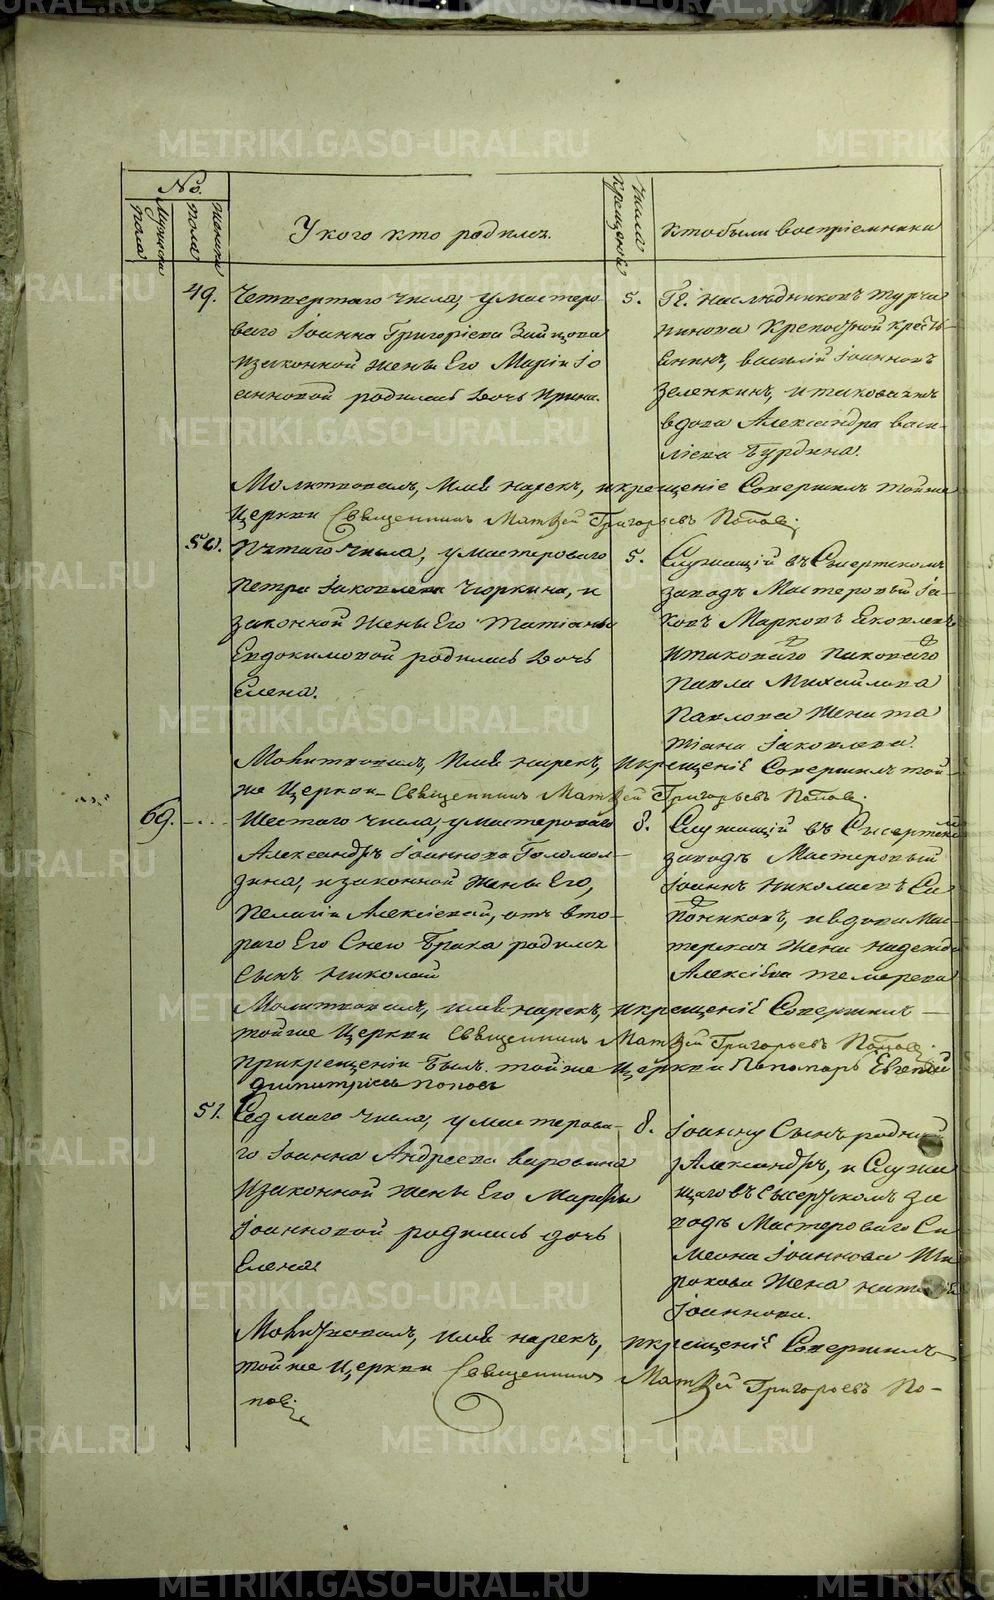 METRIKI.GASO-URAL.RU
No.
Мужеска пола
Женска пола
У кого кто родился.
Числа крещения
Кто были восприемники
49.
Четвертаго числа, у мастеро-
ваго Iоанна Григорiева Зайцова
и законной жены Его Марiи Iо
анновой родилась дочь Ирина.
5.
Гг. наслѣдниковъ Турча
нинова Крепостной крестья-
нинъ, василiй Iоанновъ
Зеленкинъ, и таковагожъ
вдова Александра васи-
лiева Бурдина.
Молитвовалъ, имя нарекъ, и крещенiе Совершилъ тойже
Церкви Священникъ Матѳей Григорьевъ Поповъ
50.
Пятаго числа, у мастероваго
Петра Iаковлева Чюркина, и
законной жены Его Татiаны
Евдокимовой родилась дочь
Елена.
5.
Служащiй въ Сысертскомъ
заводѣ Мастеровый Iа-
ковъ Марковъ Яковлевъ
и таковаго
Павла Михайлова
Павлова жена та
тiана Iаковлева.
Молитвовалъ, имя нарекъ, и крещенiе Совершилъ той-
же Церкви Священникъ Матѳей Григорьевъ Поповъ
69.
Шестаго числа, у мастероваго
Александръ Iоаннова Голомол-
зина, и законной жены Его,
Пелагiи Алексiевой, отъ вто-
раго Его Снею брака родился
Сынъ Николай
8.
Служащiй въ Сысертско
заводѣ Мастеровый
Iоаннъ Николаевъ Са
пожниковъ, и вдова Мас-
терская жена надежда
Алексiева темерева
Молитвовалъ, имя нарекъ, и крещенiе Совершилъ
тойже Церкви Священникъ Матѳей Григорьевъ Поповъ
при крещенiи былъ тойже Церкви Пономарь Евгенiй
Димитрiевъ Поповъ
51.
Седмаго числа, у мастерова-
го Iоанна Андреева варовина
и законной жены Его Марѳы
Iоанновой родилась дочь
Елена
8.
Iоанну Сынъ родный
Александръ, и Служа
щаго въ Сысертскомъ за
водѣ Мастероваго Си
меона Iоаннова Ши
рокова жена
Iоаннова.
Молитвовалъ, имя нарекъ, и крещенiе Совершилъ
тойже Церкви Священникъ Матѳей Григорьевъ По-
повъ